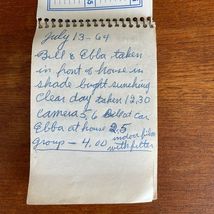 July 13-64
Bill & Ebba taken
in front of house in
shade bright sunshing
clear day taken 12,30
camera 5,6 Bill at car
Ebba at house 2.5
group - 4,00 indoor film
with filter